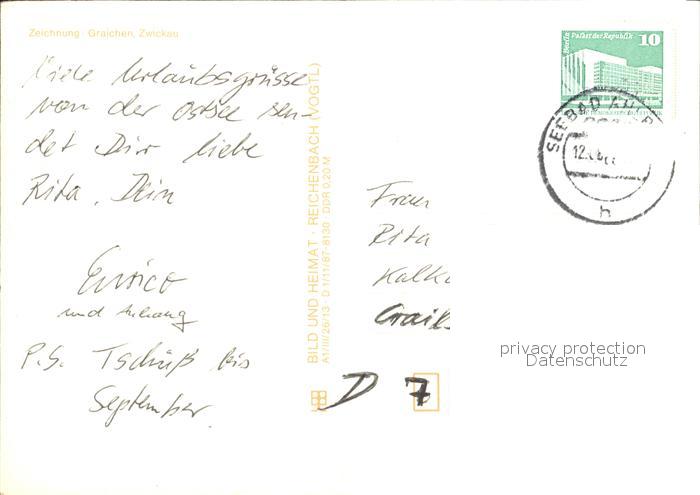 Zeichnung: Grajchen, Zwickau
Liebe Urlaubsgrüsse
von der Ostsee sen-
det Dir liebe
Rita, Dein
Enrico
und Anhang
P.S. Tschüß bis
September.
BILD UND HEIMAT · REICHENBACH (VOGTL)
A1/III/26/13 · D 1/11/87-8130 · DDR 0,20 M
Berlin Palast der Republik 10
SEEBAD
12.
h
Frau
Rita
D 7
privacy protection
Datenschutz